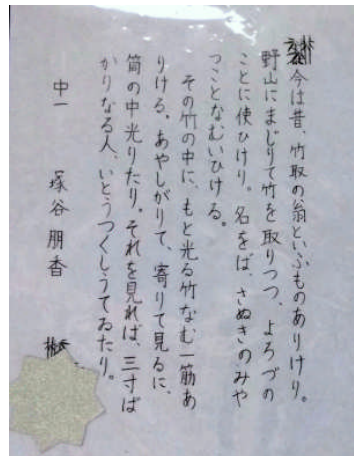 今は昔、竹取の翁といふものありけり。
野山にまじりて竹を取りつつ、よろづの
ことに使ひけり。名をば、さぬきのみや
つことなむいひける。
その竹の中に、もと光る竹なむ一筋あ
りける。あやしがりて、寄りて見るに、
筒の中光りたり。それを見れば、三寸ば
かりなる人、いとうつくしうてゐたり。
中一 塚谷朋香